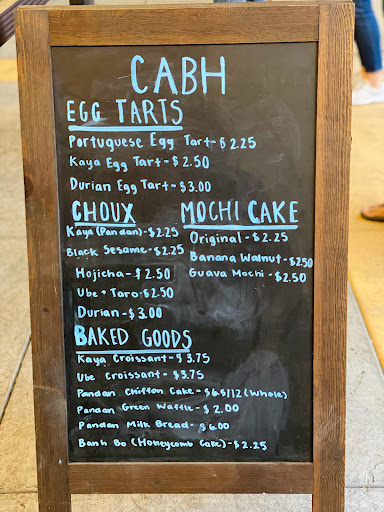 CABH
EGG TARTS
Portuguese Egg Tart - $2.25
Kaya Egg Tart - $2.50
Durian Egg Tart - $3.00
CHOUX
Kaya (Pandan) - $2.25
Black Sesame - $2.25
Hojicha - $2.50
Ube + Taro - $2.50
Durian - $3.00
MOCHI CAKE
Original - $2.25
Banana Walnut - $2.50
Guava Mochi - $2.50
BAKED GOODS
Kaya Croissant - $3.75
Ube Croissant - $3.75
Pandan Chiffon Cake - $6.5/12 (Whole)
Pandan Green Waffle - $2.00
Pandan Milk Bread - $6.00
Banh Bo (Honeycomb Cake) - $2.25